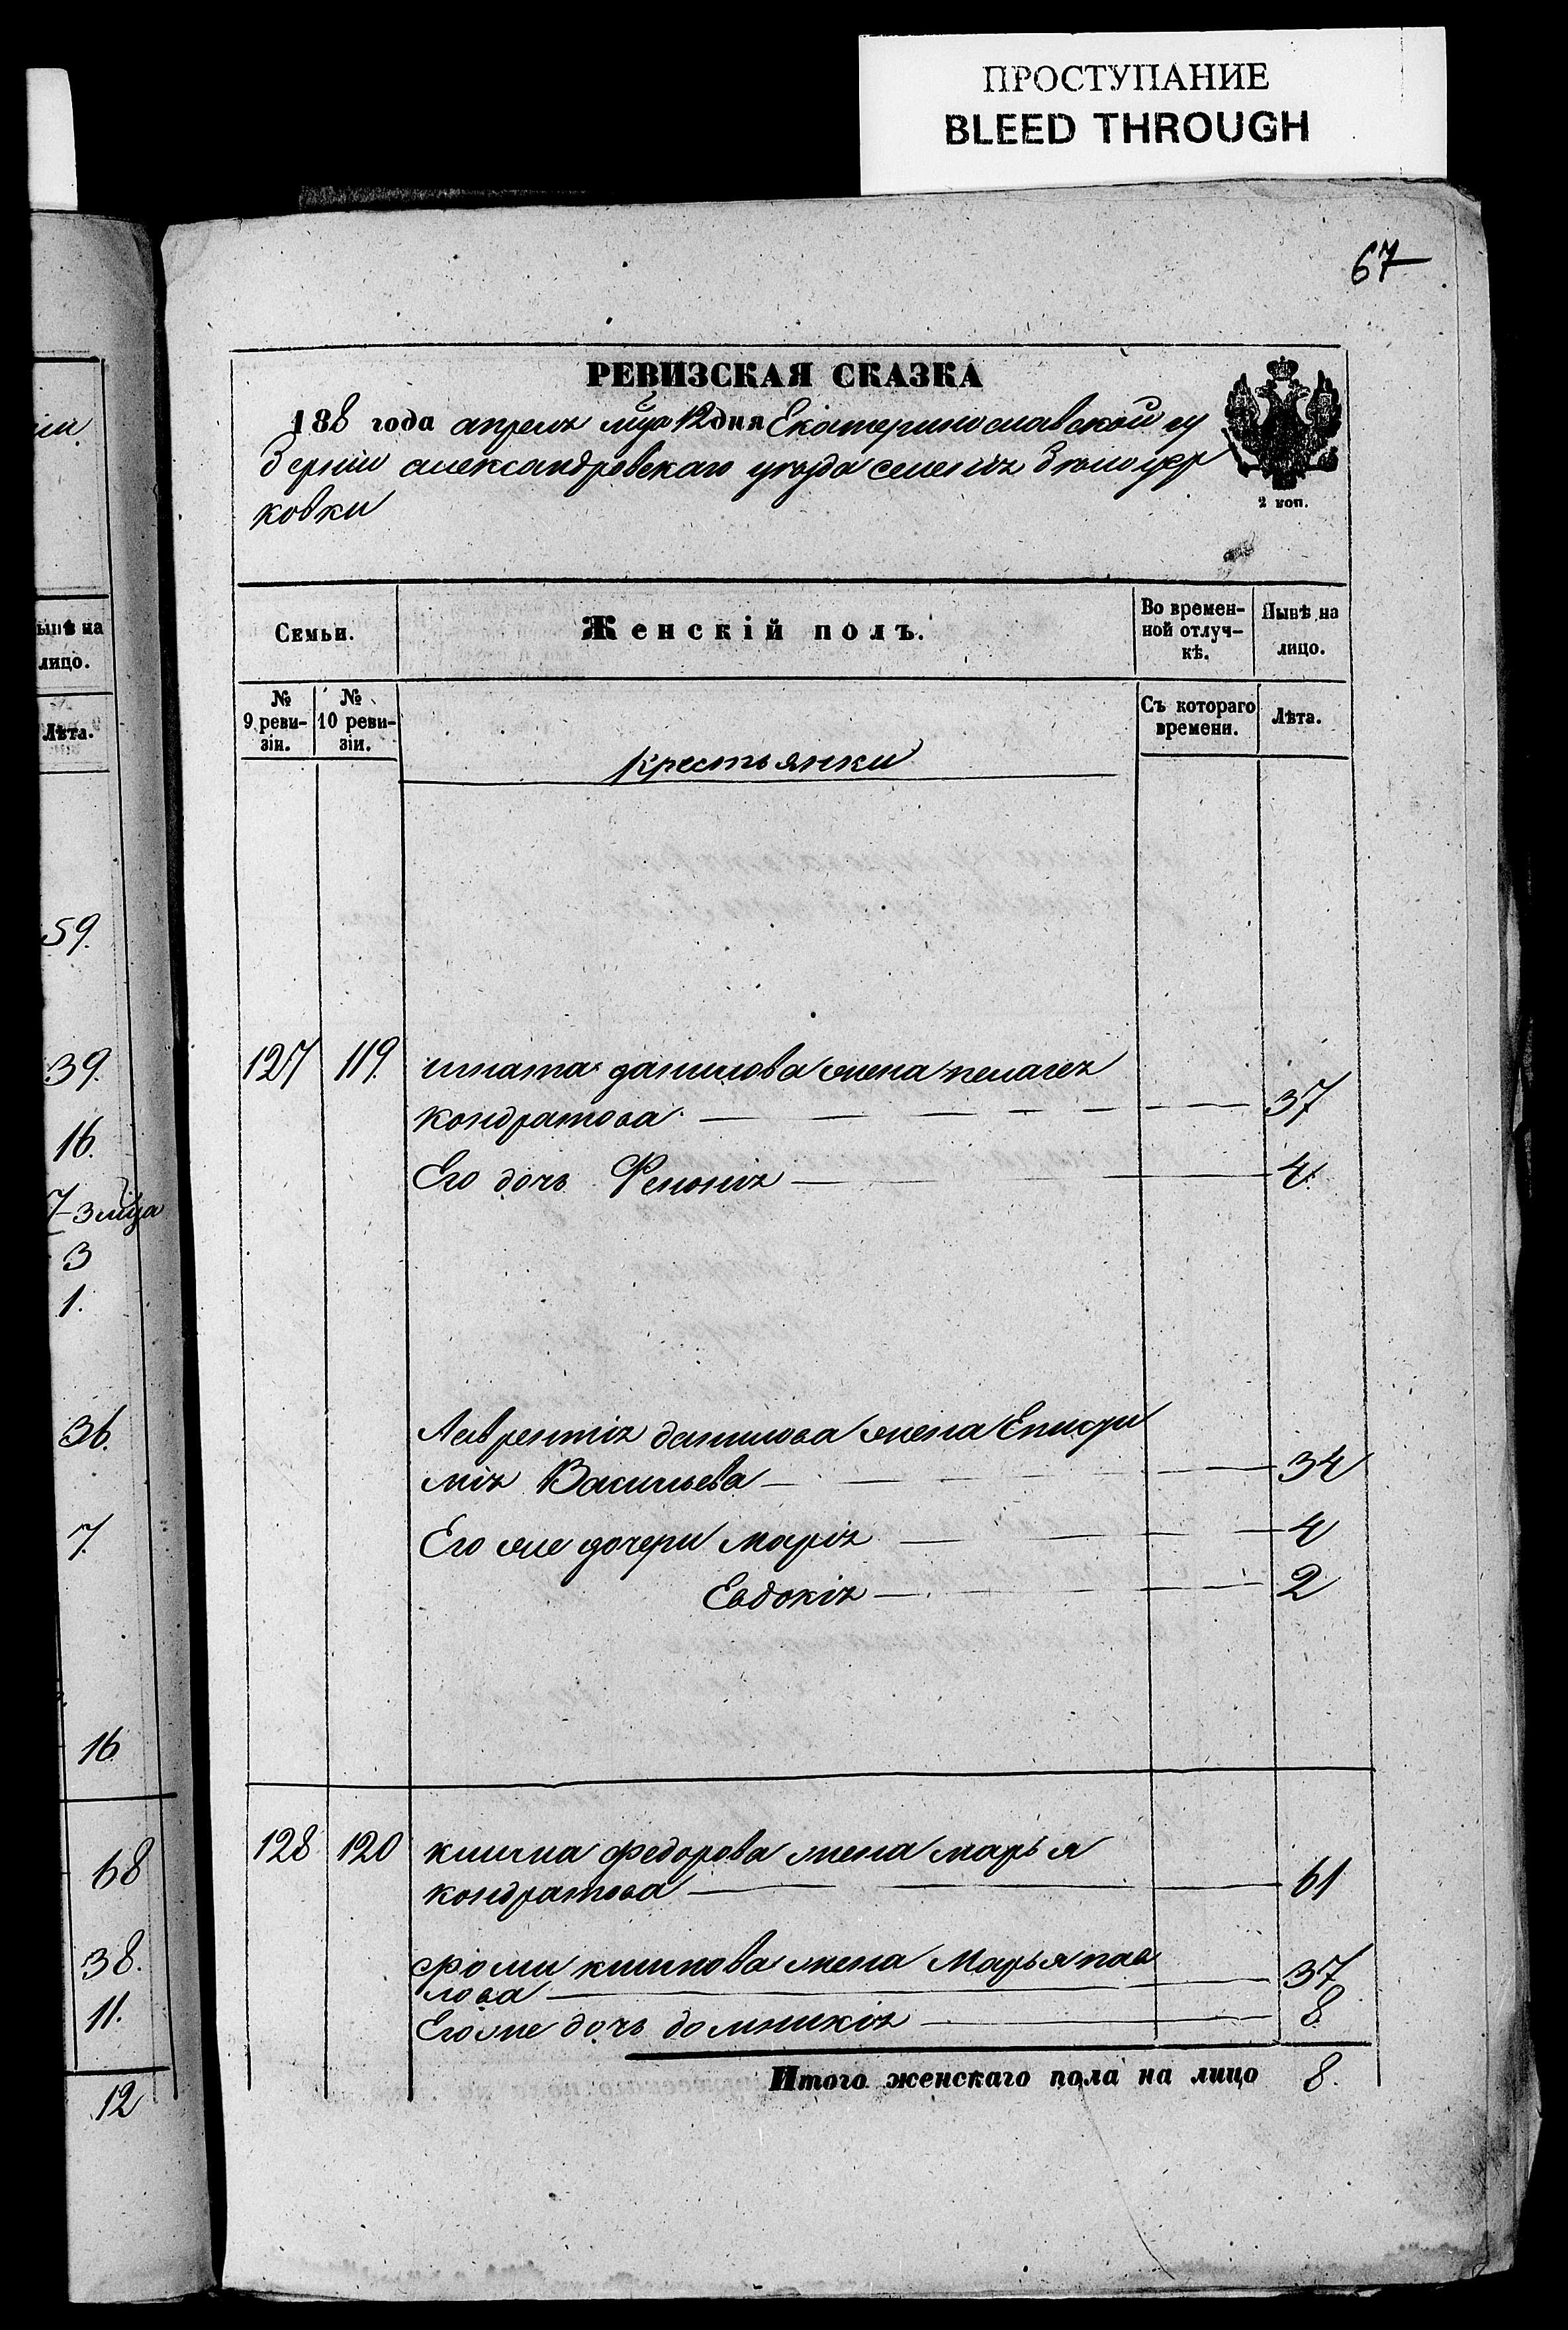 ПРОСТУПАНИЕ
BLEED THROUGH
67
РЕВИЗСКАЯ СКАЗКА
188 года апреля мца 12 дня Екатеринославской гу
берніи александровскаго уезда селенія бѣлоцер
ковки
2 коп.
Семьи.
Женскій полъ.
Во времен-
ной отлуч-
кѣ.
Нынѣ на
лицо.
№
9 реви-
зіи.
№
10 реви-
зіи.
крестьянки
Съ котораго
времени.
Лѣта.
127 119 игната данилова жена пелагея
кондратова 37
Его дочь Фенонія 4
Лаврентія данилова жена Епистри
мія Васильева 34
Его же дочери марія 4
Евдокія 2
128 120 климa федорова жена марья
кондратова 61
фомы климова жена Марья пав
лова 37
Его же дочь домникія 8
Итого женскаго пола на лицо 8.
ынѣ на
лицо.
Лѣта.
59.
39.
16.
7 3 мца
3
1.
36.
7.
16
68
38.
11.
12